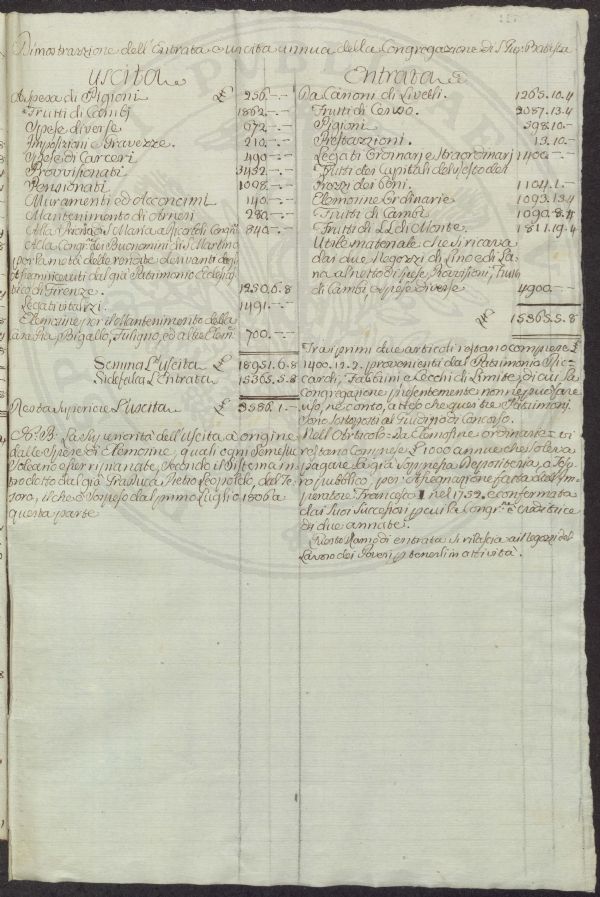 Dimostrazione dell'Entrata e uscita annua della Congregazione di S. Gio: Batista
Uscita
A Spesa di Pigioni 256.—.—
Frutti di Cambj 1862.—.—
Spese diverse 672.—.—
Imposizioni e Gravezze. 210.—.—
Spese di Carceri 490.—.—
Provvisionati 3432.—.—
Pensionati 1098.—.—
Muramenti ed Acconcimi 140.—.—
Mantenimento di Arnesi 280.—.—
Alla Chiesa di S. Maria a Ricordi Congni 840.—.—
Alla Congne dei Buonomini di S. Martino
per la metà delle rendite derivanti dagli
amministrati dal già Patrimonio Ecclesias
tico di Firenze. 1250.6.8
Legati vitalizi. 1491.—.—
Elemosine per il Mantenimento della
Fuligno, ed altre Elem: 700.—.—
Somma L'Uscita 18951.6.8
Si defalca L'Entrata 15365.5.8
Resta Superiore L'uscita 3586.1.—
N.B. La Superiorità dell'Uscita à origine
dalle Spese di Elemosine, quali ogni Semestre
Soleano esser ripianate, Secondo il Sistema in
trodotto dal già Granduca Pietro Leopoldo, dal Te
soro, il che è Sospeso dal primo Luglio 1806 a
questa parte
Entrata
Da Canoni di Livelli. 1265.10.4
Frutti di Censo. 2087.13.4
Pigioni 398.10.—
Prestazioni. 13.10.—
Legati Ordinarj e Straordinarj 1400.—.—
Frutti dei Capitali del
Prezzi dei beni. 1104.1.—
Elemosine Ordinarie 1093.13.4
Frutti di Cambi 1090.8.4
Frutti di LL. di Monte. 1811.19.4
Utile materiale che si ricava
dai due Negozzi di Lino e di La
na al netto di Spese, Provvisioni, Frutti
di Cambi, e spese diverse 4900.—.—
15365.5.8
Tra i primi due articoli restano comprese £
1400.12.2. provenienti dal Patrimonio Ric
cardi, Fabbrini e Cecchi di Limite, di cui la
Congregazione presentemente non ne può fare
uso, ne conto, atteso che questi tre Patrimonj
sono Sottoposti al Giudizio di Concorso.
Nell'Articolo = Da Elemosine ordinarie = vi
restano Comprese £ 1000 annue che soleva
pagare la già Soppressa Depositeria, o Teso
ro pubblico, per Assegnazione fatta dall'Im
peratore Francesco I nel 1752. e confermata
dai Suoi Successori per cui la Congne è creditrice
di due annate.
Questo Ramo di entrata si rilascia ai Negozzi del
Lavoro dei Poveri p. tenerli in attività.